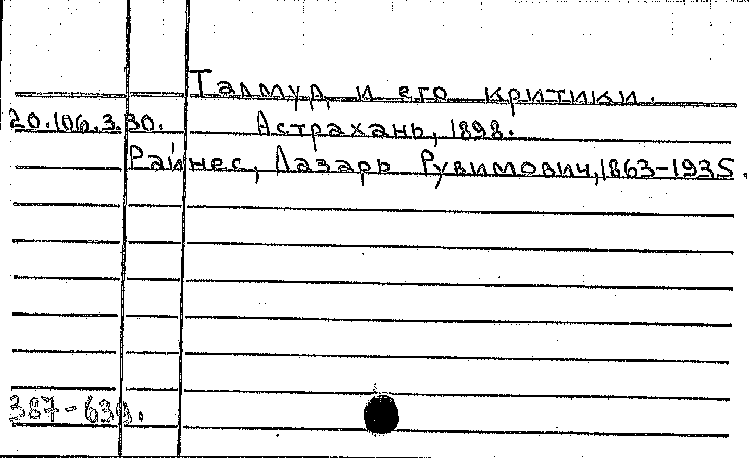 Талмуд и его критики.
20.106.3.30. Астрахань, 1898.
Райнес, Лазарь Рувимович, 1863-1935.
387-639.